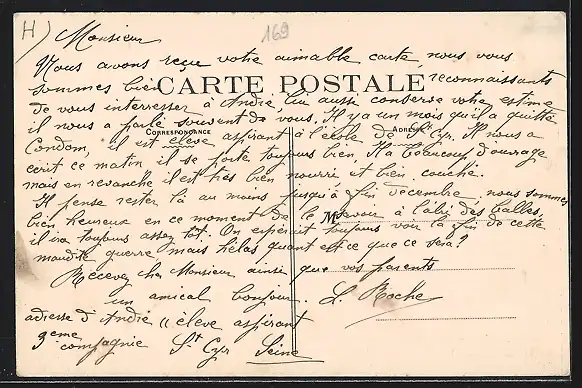 H)
169
Monsieur
Nous avons reçu votre aimable carte, nous vous
CARTE POSTALE
sommes bien reconnaissants
de vous interresser à André, lui aussi conserve votre estime
il nous a parlé souvent de vous. Il y a un mois qu'il a quitté
CORRESPONDANCE
ADRESSE
Condom, il est élève aspirant à l'école de St Cyr. Il nous a
écrit ce matin il se porte toujours bien. Il a beaucoup d'ouvrage
mais en revanche il est très bien nourri et bien couché.
Il pense rester là au moins jusqu'à fin décembre, nous sommes
bien heureux en ce moment de le savoir à l'abri des balles,
M
il ira toujours assez tôt. On espérait toujours voir la fin de cette
maudite guerre mais hélas quant est ce que ce sera?
Recevez cher Monsieur ainsi que vos parents
un amical bonjour. L. Roche
adresse d'André élève aspirant
3ème compagnie St Cyr Seine